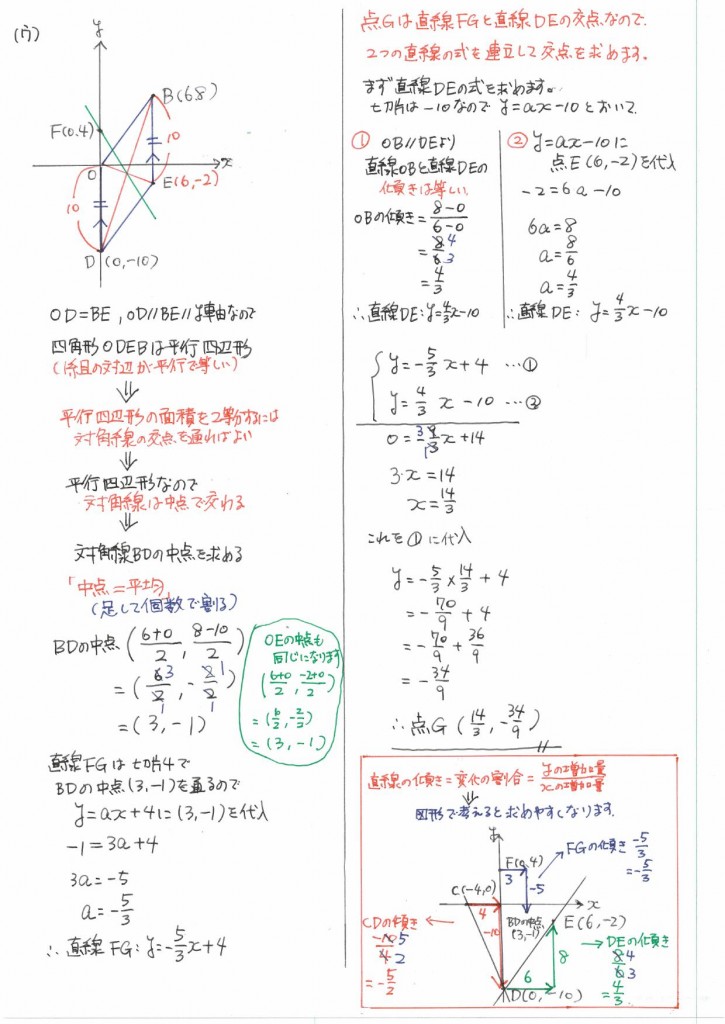 (ウ)
y
B(6,8)
F(0,4)
10
x
O
E(6,-2)
10
D(0,-10)
OD=BE, OD//BE//y軸なので
四角形ODEBは平行四辺形
(1組の対辺が平行で等しい)
⇓
平行四辺形の面積を2等分するには
対角線の交点を通ればよい
⇓
平行四辺形なので
対角線は中点で交わる
⇓
対角線BDの中点を求める
「中点=平均」
(足して個数で割る)
BDの中点 (6+0/2, 8-10/2)
=(6/2, -2/2)
3 1
1 1
=(3,-1)
OEの中点も
同じになります
(6+0/2, -2+0/2)
=(6/2, -2/2)
=(3,-1)
直線FGは切片4で
BDの中点(3,-1)を通るので
y=ax+4に(3,-1)を代入
-1=3a+4
3a=-5
a=-5/3
∴直線FG:y=-5/3x+4
点Gは直線FGと直線DEの交点なので、
2つの直線の式を連立して交点を求めます。
まず直線DEの式を求めます。
切片は-10なのでy=ax-10とおいて
① OB//DEより
直線OBと直線DEの
傾きは等しい
OBの傾き=8-0/6-0
=8/6
4
3
=4/3
∴直線DE:y=4/3x-10
② y=ax-10に
点E(6,-2)を代入
-2=6a-10
6a=8
a=8/6
a=4/3
∴直線DE:y=4/3x-10
y=-5/3x+4 …①
y=4/3x-10 …②
0=-9/3x+14
3
1
3x=14
x=14/3
これを①に代入
y=-5/3×14/3+4
=-70/9+4
=-70/9+36/9
=-34/9
∴点G(14/3, -34/9)
直線の傾き=変化の割合=yの増加量/xの増加量
⇓
図形で考えると求めやすくなります。
y
F(0,4)
3
-5
FGの傾き -5/3
=-5/3
C(-4,0)
4
-10
x
BDの中点
(3,-1)
E(6,-2)
CDの傾き
-10/4
5
2
=-5/2
8
6
D(0,-10)
DEの傾き
8/6
4
3
=4/3